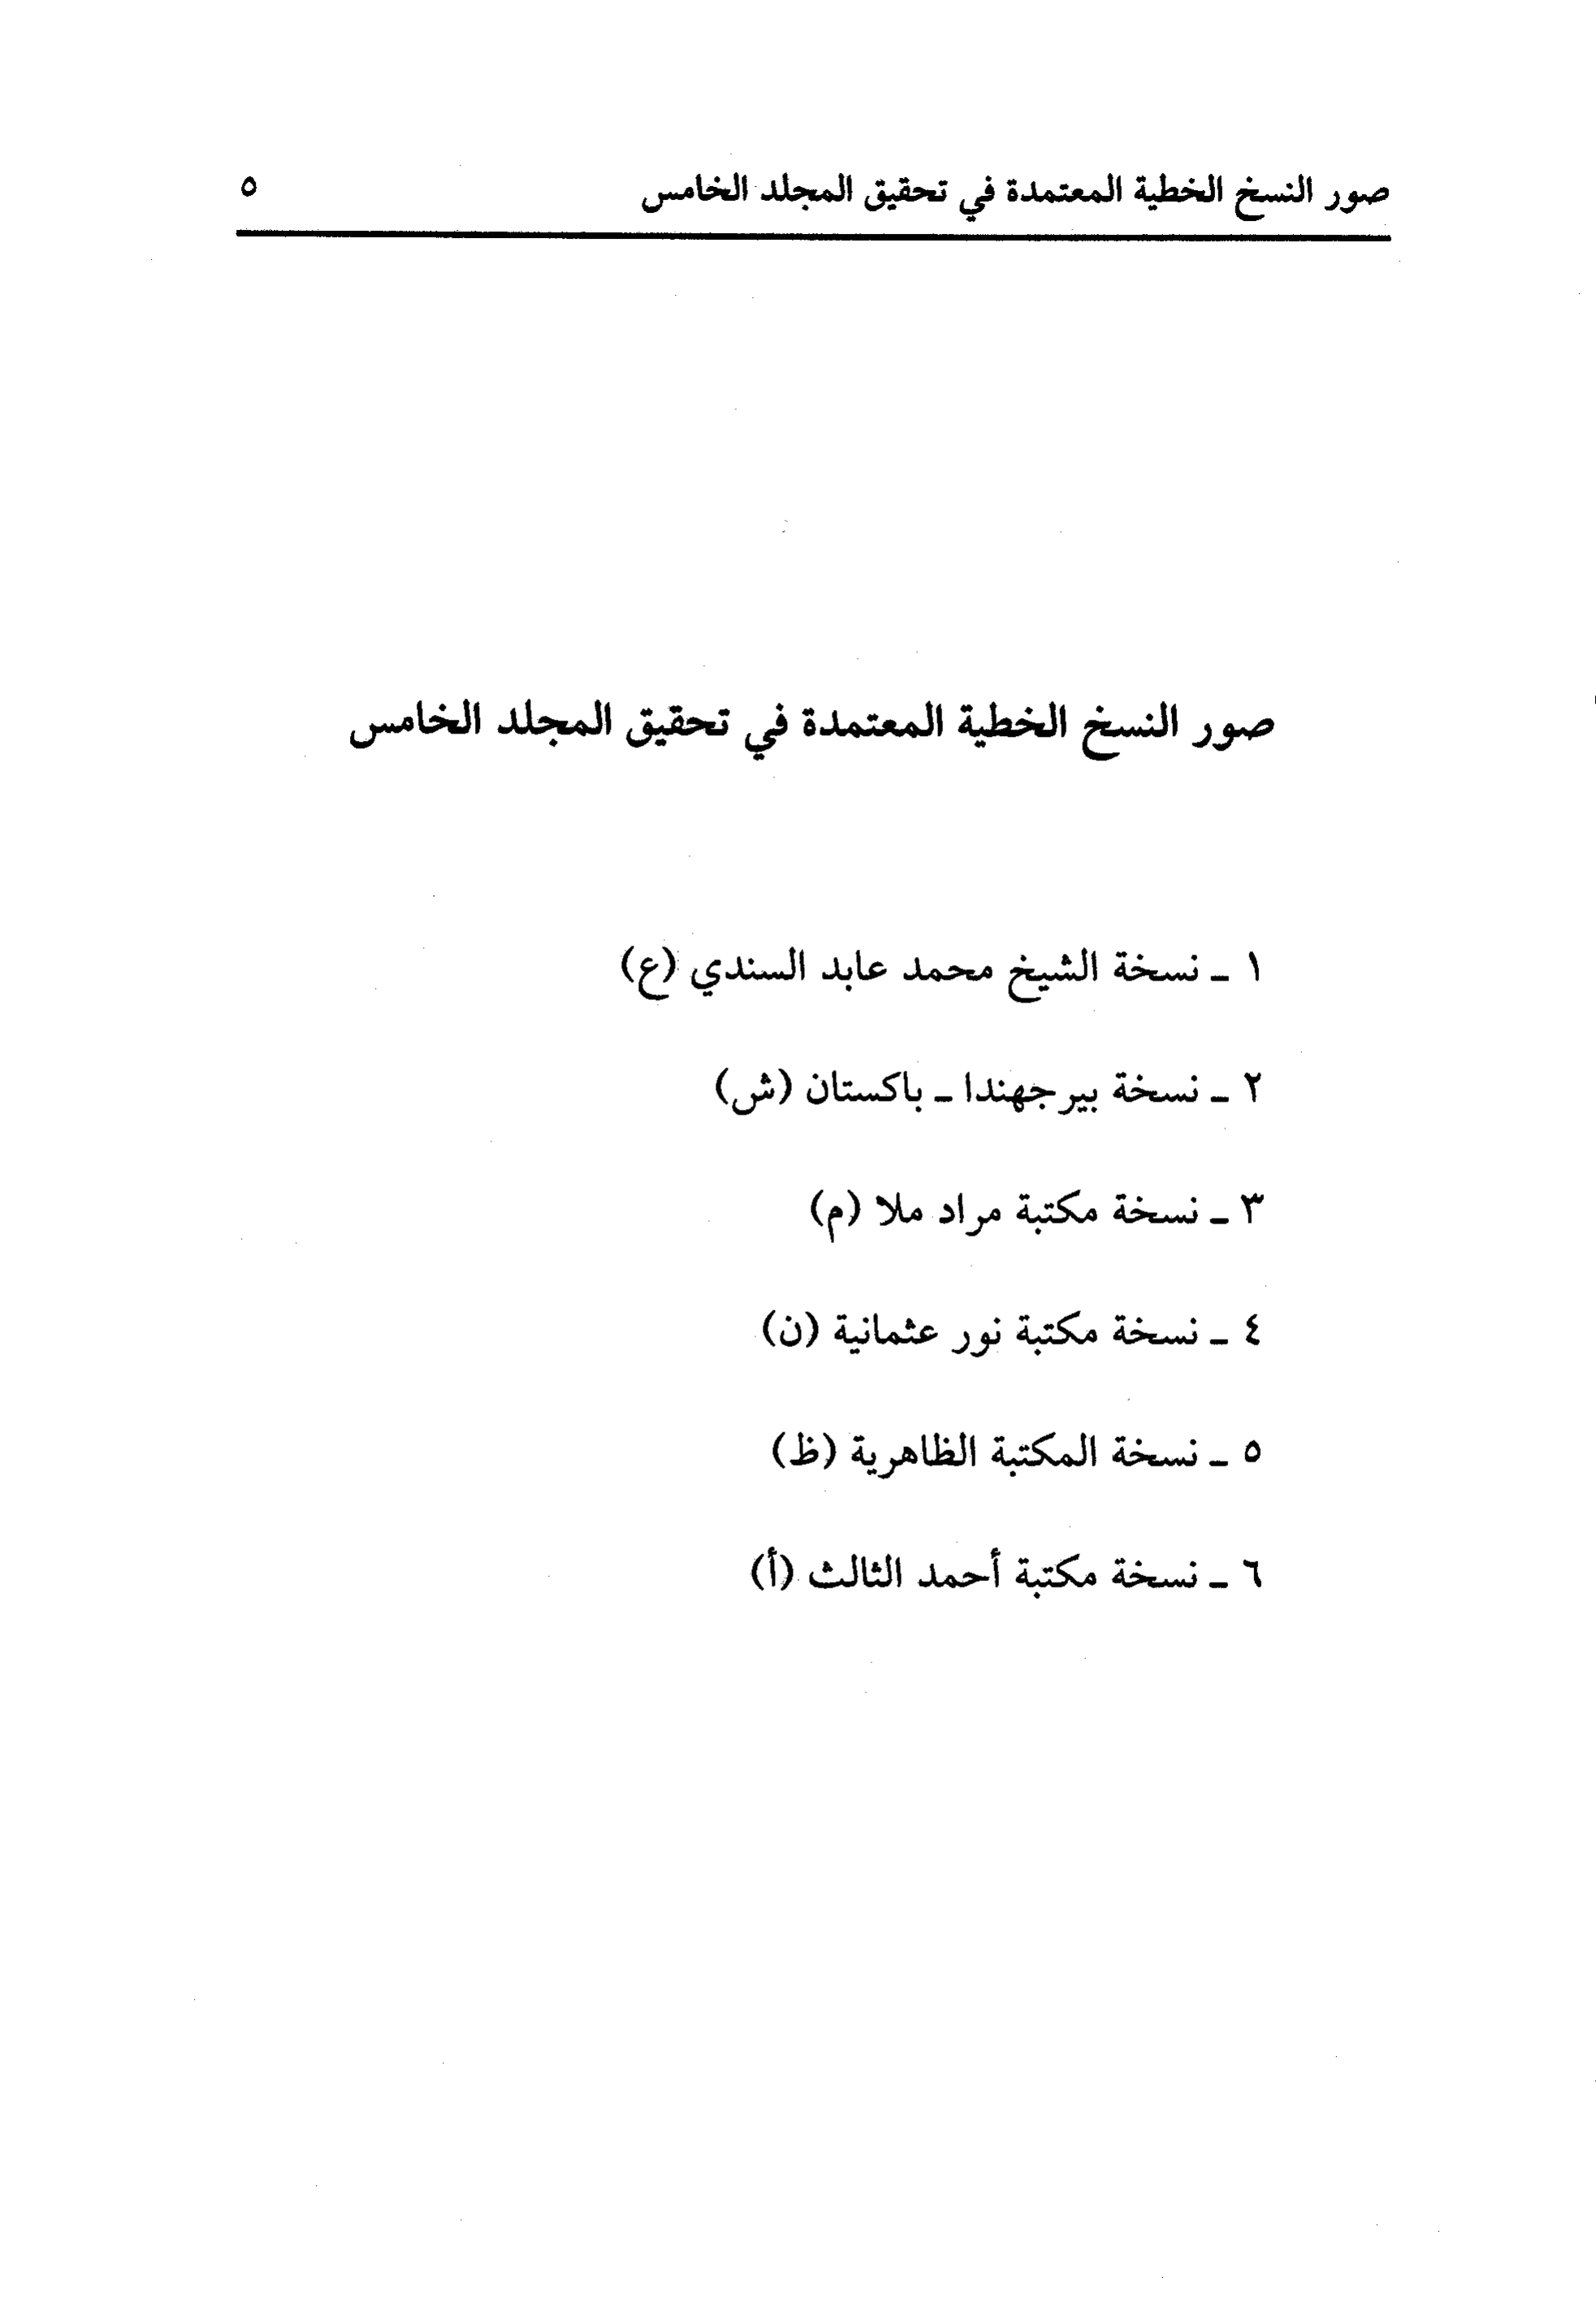 صور النسخ الخطية المعتمدة في تحقيق المجلد الخامس ٥
صور النسخ الخطية المعتمدة في تحقيق المجلد الخامس
١ ـ نسخة الشيخ محمد عابد السندي (ع)
٢ ـ نسخة بيرجهندا ـ باكستان (ش)
٣ ـ نسخة مكتبة مراد ملا (م)
٤ ـ نسخة مكتبة نور عثمانية (ن)
٥ ـ نسخة المكتبة الظاهرية (ظ)
٦ ـ نسخة مكتبة أحمد الثالث (أ)